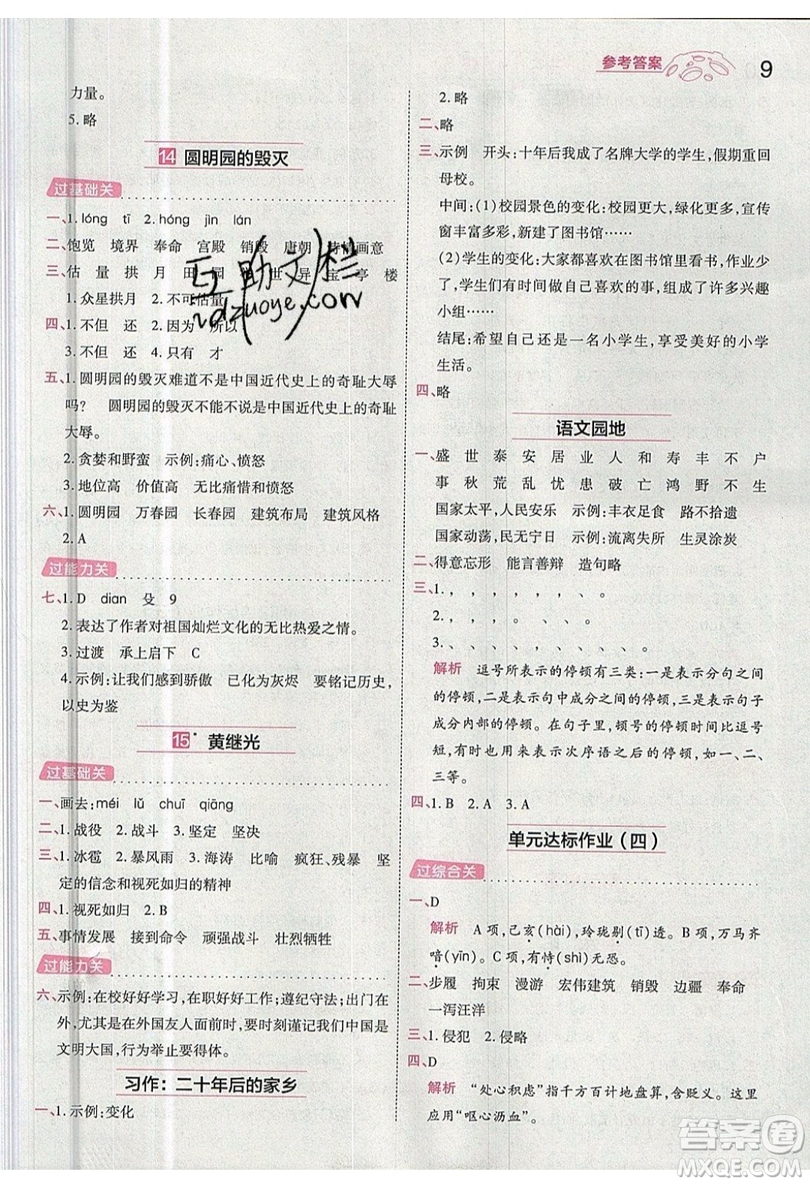 参考答案 9
力量。
5. 略
14 圆明园的毁灭
过基础关
一、1. lóng tī 2. hóng jìn lán
二、饱览 境界 奉命 宫殿 销毁 唐朝 画意
三、估 量 拱 月 田 世 异 宝 亭 楼
1. 众星拱月 2. 不可估量
四、1. 不但 还 2. 因为 所以
3. 不但 还 4. 只有 才
五、1. 圆明园的毁灭难道不是中国近代史上的奇耻大辱
吗? 圆明园的毁灭不能不说是中国近代史上的奇耻
大辱。
2. 贪婪和野蛮 示例:痛心、愤怒
3. 地位高 价值高 无比愤怒
六、1. 圆明园 万春园 长春园 建筑布局 建筑风格
2. A
过能力关
七、1. D dian 殳 9
2. 表达了作者对祖国灿烂文化的无比热爱之情。
3. 过渡 承上启下 (C)
4. 示例:让我们感到骄傲 已化为灰烬 要铭记历史,
以史为鉴
15* 黄继光
过基础关
一、画去:méi lǔ chuī qiāng
二、1. 战役 2. 战斗 3. 坚定 坚决
三、1. 冰雹 2. 暴风雨 3. 海涛 比喻 疯狂、残暴 坚
定的信念和视死如归的精神
四、1. 视死如归 2. B
五、事情发展 接到命令 顽强战斗 壮烈牺牲
过能力关
六、示例:在校好好学习,在职好好工作;遵纪守法;出门在
外,尤其是在外国友人面前时,要时刻谨记我们中国是
文明大国,行为举止要得体。
习作:二十年后的家乡
一、1. 示例:变化
2. 略
二、略
三、示例 开头:十年后我成了名牌大学的学生,假期重回
母校。
中间:(1)校园景色的变化:校园更大,绿化更多,宣传
窗丰富多彩,新建了图书馆……
(2)学生的变化:大家都喜欢在图书馆看书,作业少
了,学生可以做自己喜喜欢的事,建了许多许多兴趣
小组……
结尾:希望自己还是一名小学生,享受美好的小学
生活。
四、略
语文园地
一、盛 世 泰 安 居 业 人 和 寿 丰 不 户
事 秋 荒 乱 忧 患 破 亡 鸿 野 不 生
国家太平,人民安乐 示例:丰衣足食 路不拾遗
国家动荡,民不安宁 示例:流离失所 生灵涂炭
二、得意忘形 能言善辩 造句略
三、1. , , , , , , 。
2. 、 , 。
3. 、 、 、 、 。
解析 逗号所表示的停顿有三类:一是表示分句之间
的停顿,二是表示句中成分之间的停顿,三是表示句子
成分内部的停顿。在句子里,顿号的停顿时间比逗号
短,用于并列的词、短语之间,或次序语之后,如一、二、
三等。
四、1. B 2. A 3. A
单元达标作业(四)
过综合关
一、D
解析 A 项,己亥(hài),玲珑剔(tī)透。B 项,万马齐
喑(yīn)。C 项,有恃(shì)无恐。
二、步履 拘束 漫游 宏伟建筑 销毁 边疆 奉命
一泻汪洋
三、1. 侵犯 2. 侵略
四、D
解析 “处心积虑”指千方百计地盘算,含贬义。这里
应用“呕心沥血”。
互助文栏
zdzuoye.com
答案圈
MXQE.COM